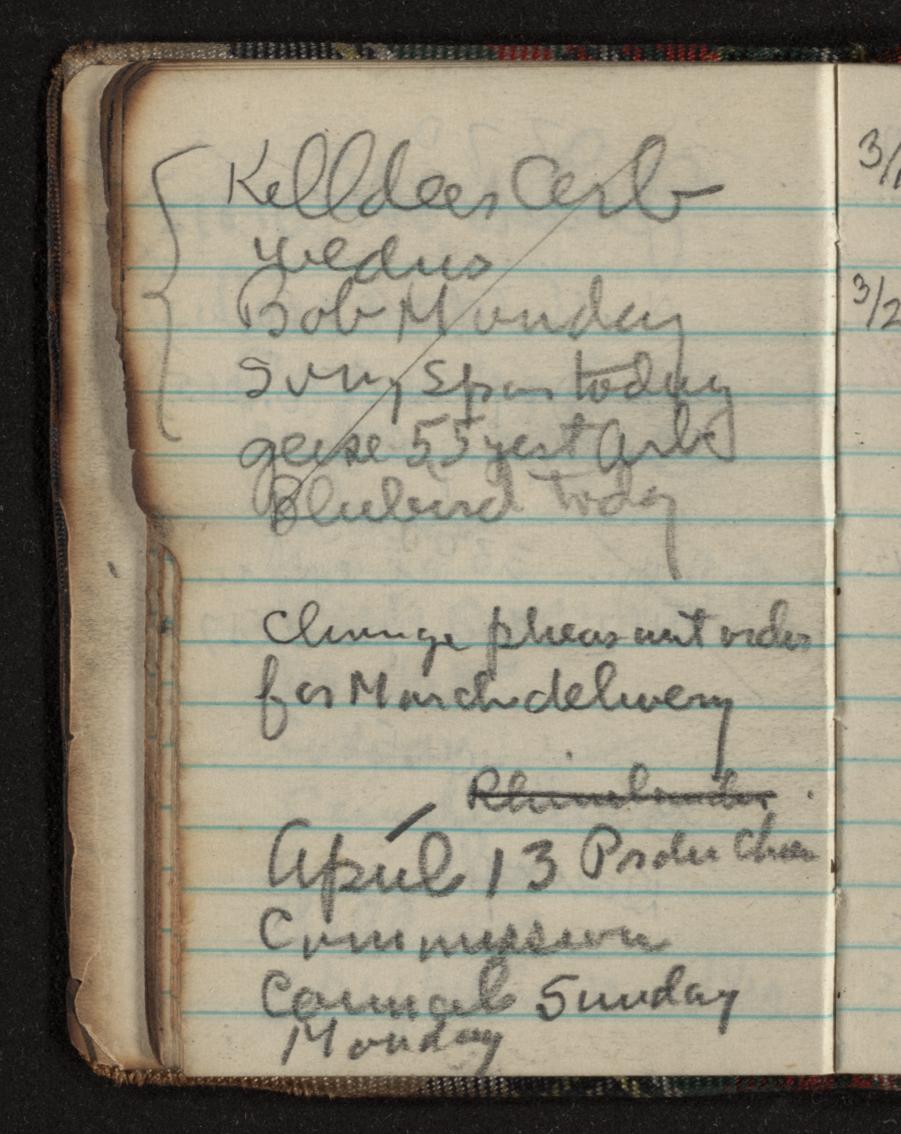 Killdeer Arb
Wednes
Bob Monday
Song Spar today
geese 55 yest Arb
Bluebird today
Change pheasant order
for March delivery
Rhinelander
April 13 Prairie Chicken
Commission
Council Sunday
Monday
3/
3/2